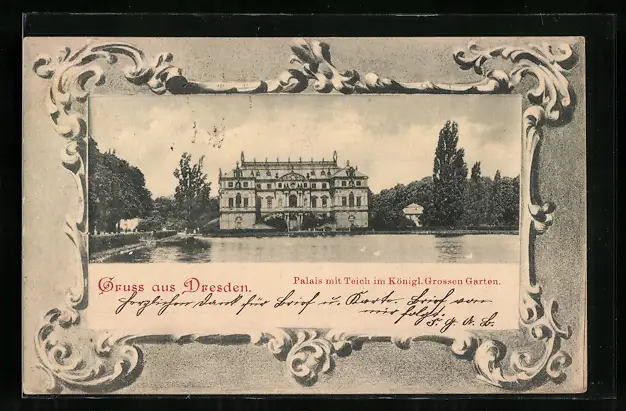 Gruss aus Dresden.
Palais mit Teich im Königl. Grossen Garten.
Herzlichen Dank für Brief u. Karte. Brief von
mir folgt.
F. G. A. B.